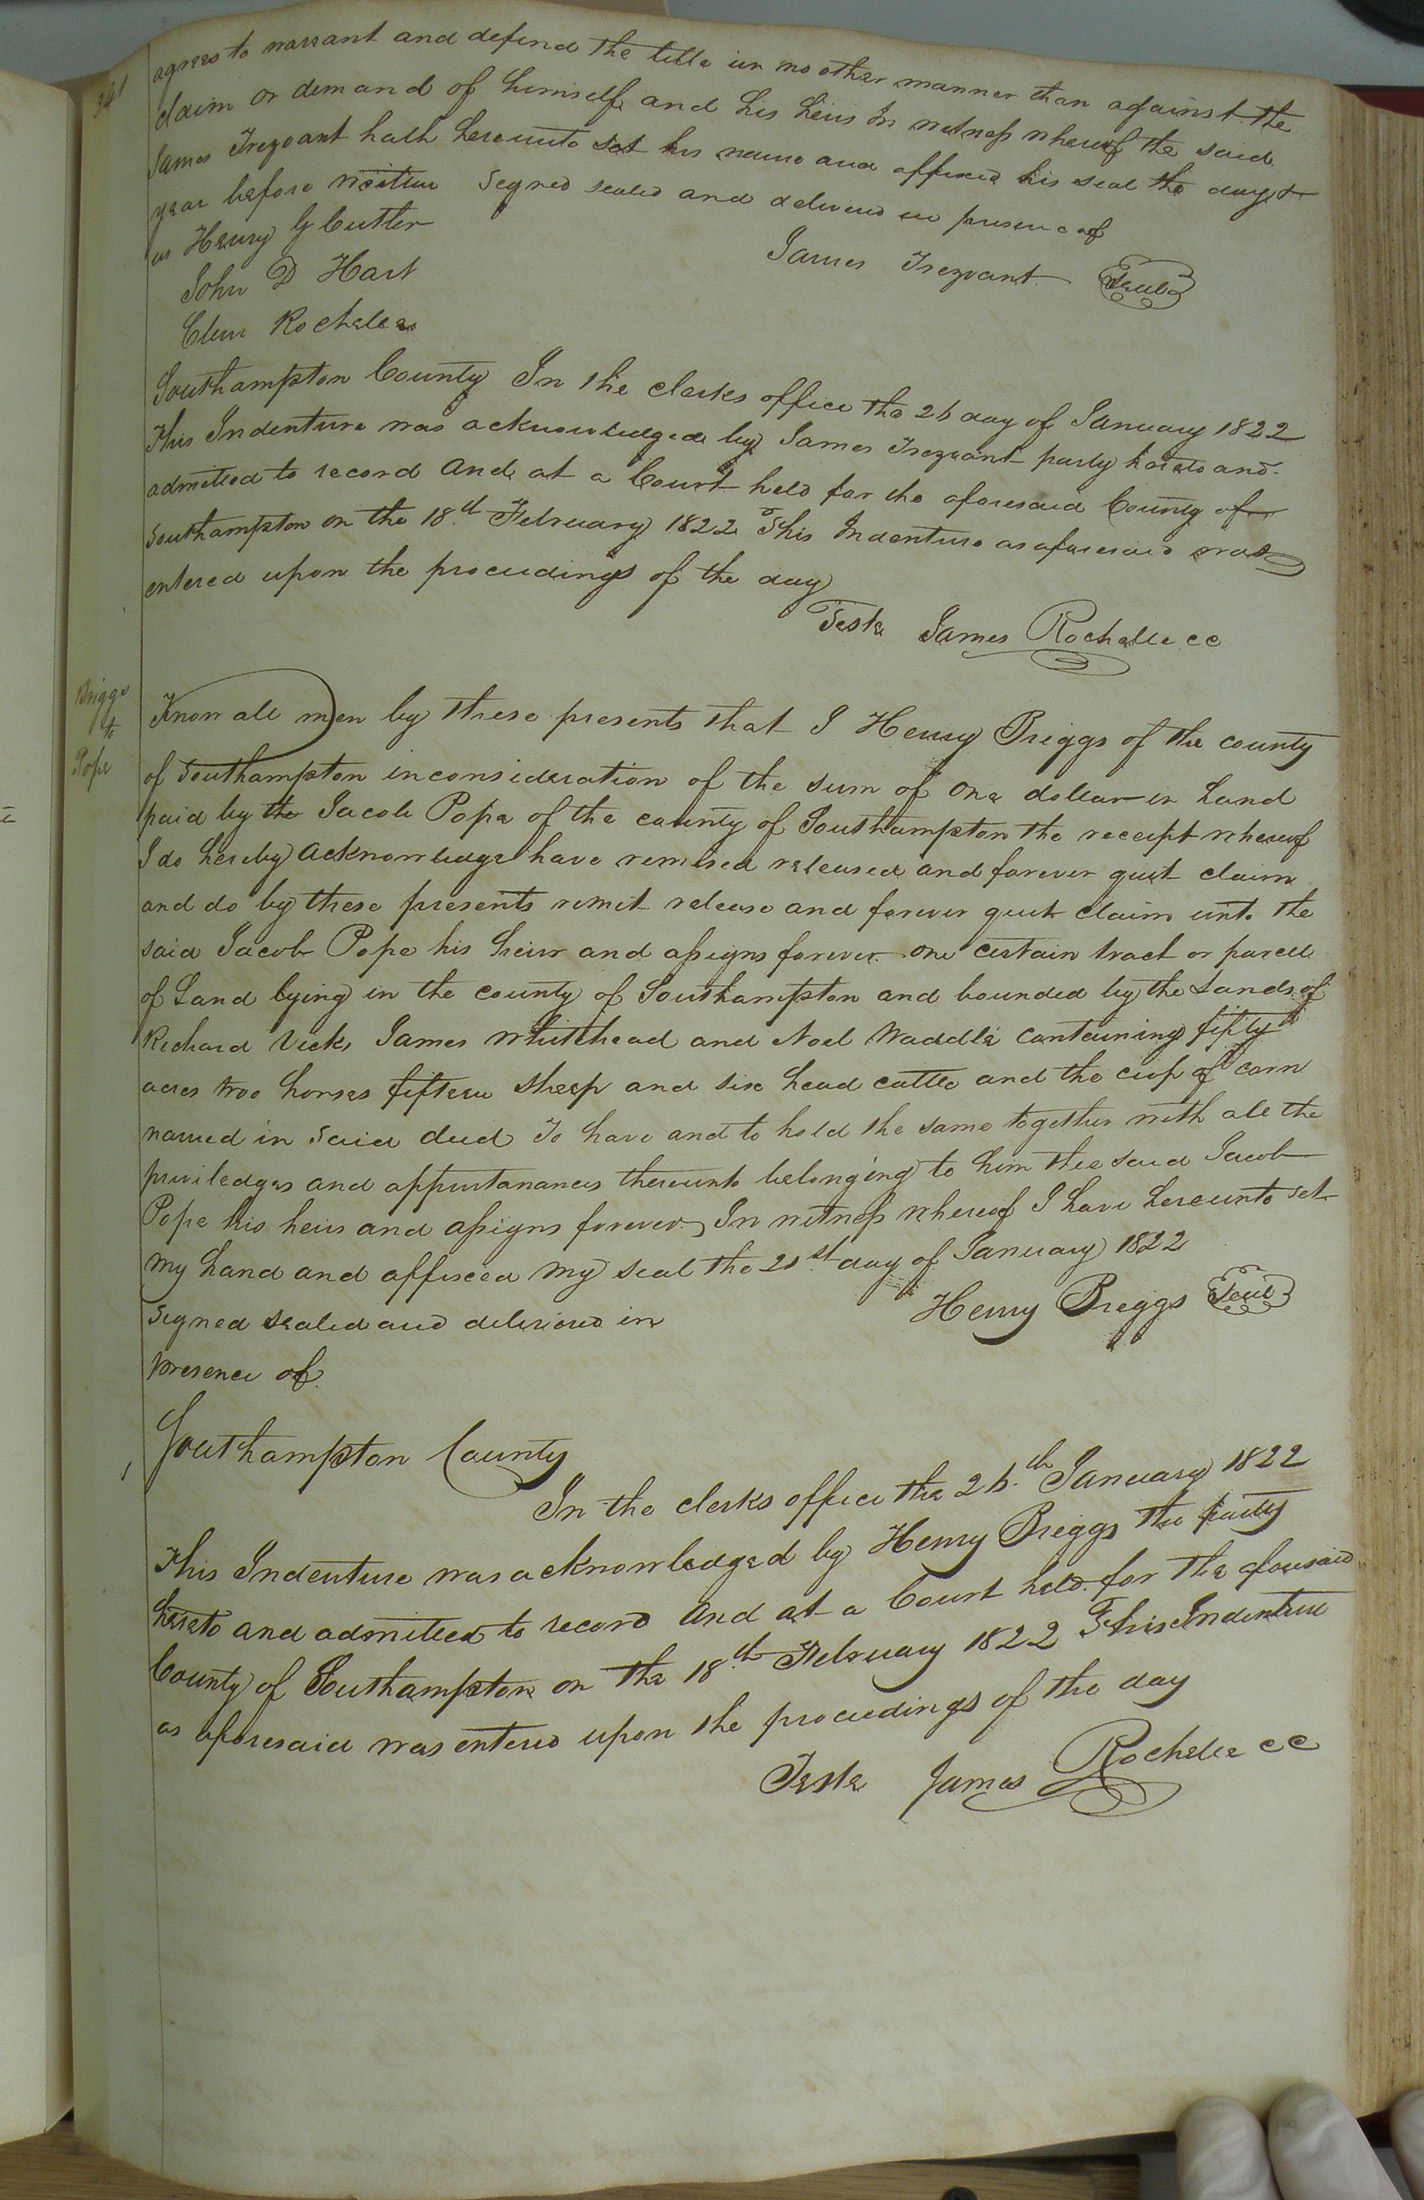 341
agrees to warrant and defend the title in no other manner than against the
claim or demand of himself and his heirs In witness whereof the said
James Trezvant hath hereunto set his name and affixed his seal the day &
year before written Signed sealed and delivered in presence of
us Henry G Cutler
James Trezvant Seal
John D Hart
Clem Rochelle
Southampton County In the clerks office the 26 day of January 1822
This Indenture was acknowledged by James Trezvant party hereto and
admitted to record And at a Court held for the aforesaid County of
Southampton on the 18th February 1822 This Indenture as aforesaid was
entered upon the proceedings of the day
Teste James Rochelle cc
Briggs
to
Pope
Know all men by these presents that I Henry Briggs of the county
of Southampton in consideration of the sum of one dollar in hand
paid by the Jacob Pope of the county of Southampton the receipt whereof
I do hereby acknowledge have remised released and forever quit claim
and do by these presents remit release and forever quit claim unto the
said Jacob Pope his heirs and assigns forever one certain tract or parcell
of Land lying in the county of Southampton and bounded by the Lands of
Richard Vicks James Whitehead and Noel Waddle containing fifty
acres two horses fifteen sheep and six head cattle and the crop of corn
named in said deed To have and to hold the same together with all the
priviledges and appurtanances thereunto belonging to him the said Jacob
Pope his heirs and assigns forever In witness whereof I have hereunto set
my hand and affixed my seal the 21st day of January 1822
Henry Briggs Seal
Signed sealed and delivered in
presence of
Southampton County
In the clerks office the 26th January 1822
This Indenture was acknowledged by Henry Briggs the party
hereto and admitted to record And at a Court held for the aforesaid
County of Southampton on the 18th February 1822 This Indenture
as aforesaid was entered upon the proceedings of the day
Teste James Rochelle cc